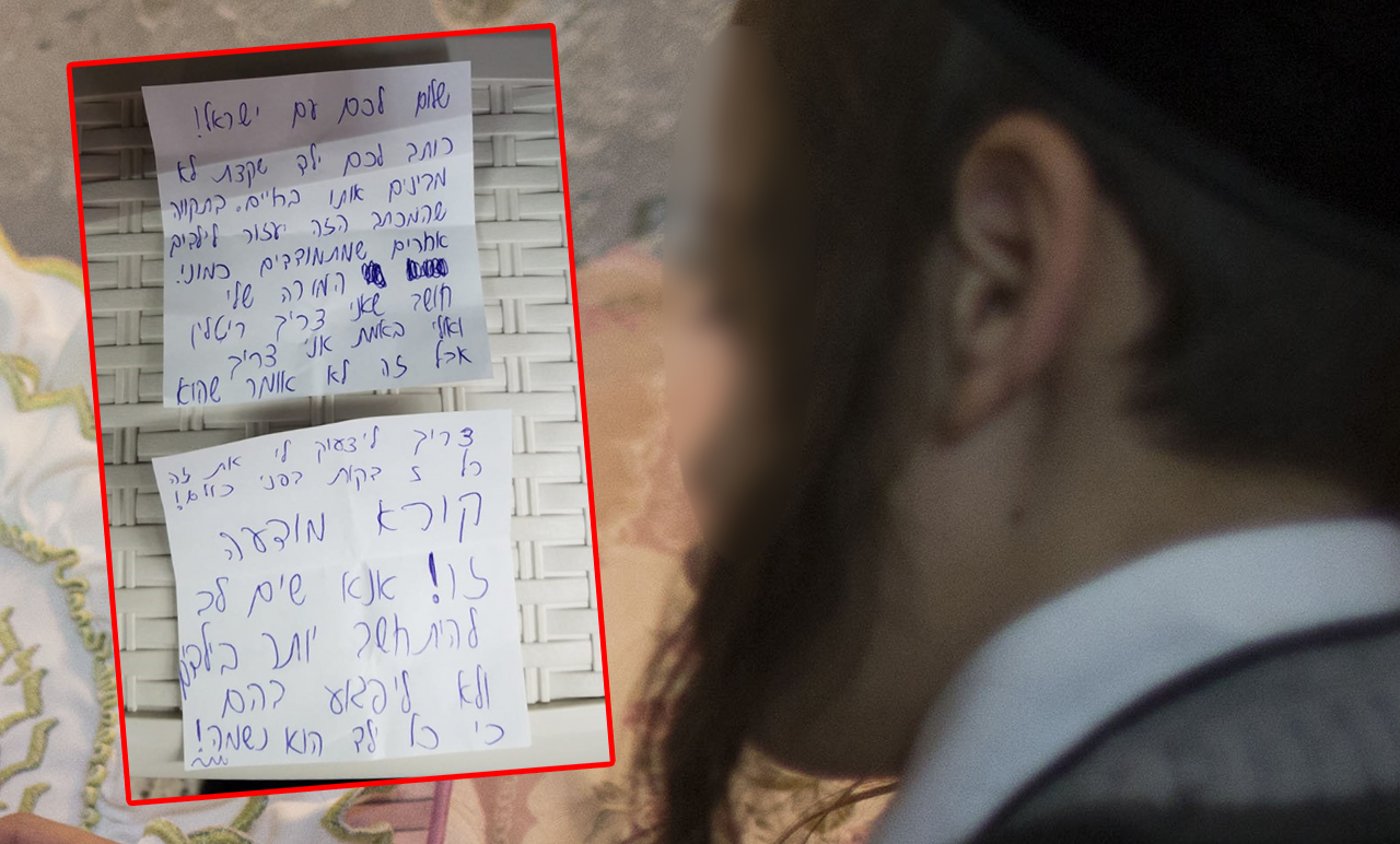 שלום לכם עם ישראל!
כותב לכם ילד שקצת לא
מבינים אותו בחיים. בתקווה
שהמכתב הזה יעזור לילדים
אחרים שמתמודדים כמוני!
המורה שלי
חושב שאני צריך ריטלין
ואולי באמת אני צריך
אבל זה לא אומר שהוא
צריך ליצעוק לי את זה
כל 2 דקות בפני כולם!
קורא מודעה
זו! אנא שים לב
להיתחשב יותר בילדים
ולא ליפגוע בהם
כי כל ילד הוא נשמה!